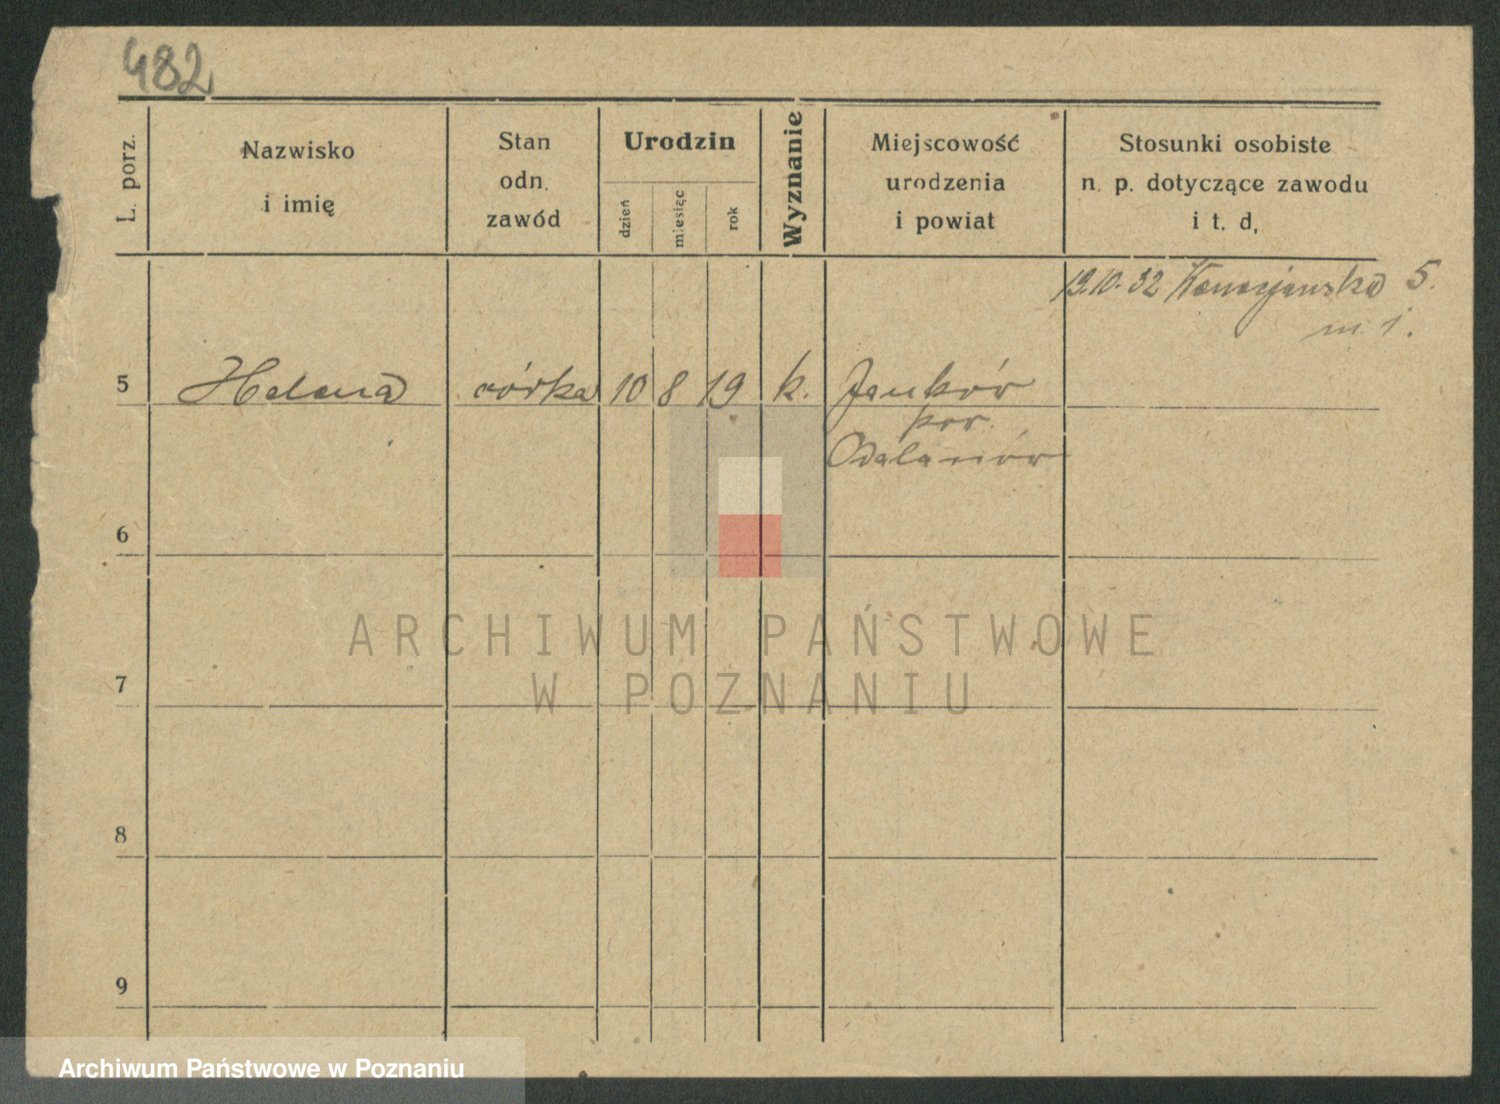 482
L. porz.
Nazwisko
i imię
Stan
odn.
zawód
Urodzin
dzień
miesiąc
rok
Wyznanie
Miejscowość
urodzenia
i powiat
Stosunki osobiste
n. p. dotyczące zawodu
i t. d,
19.10.32 5.
m 1.
5 Helena córka 10 8 19 k. Janków
pow.
Odolanów
6
7
8
9
ARCHIWUM PAŃSTWOWE
W POZNANIU
Archiwum Państwowe w Poznaniu